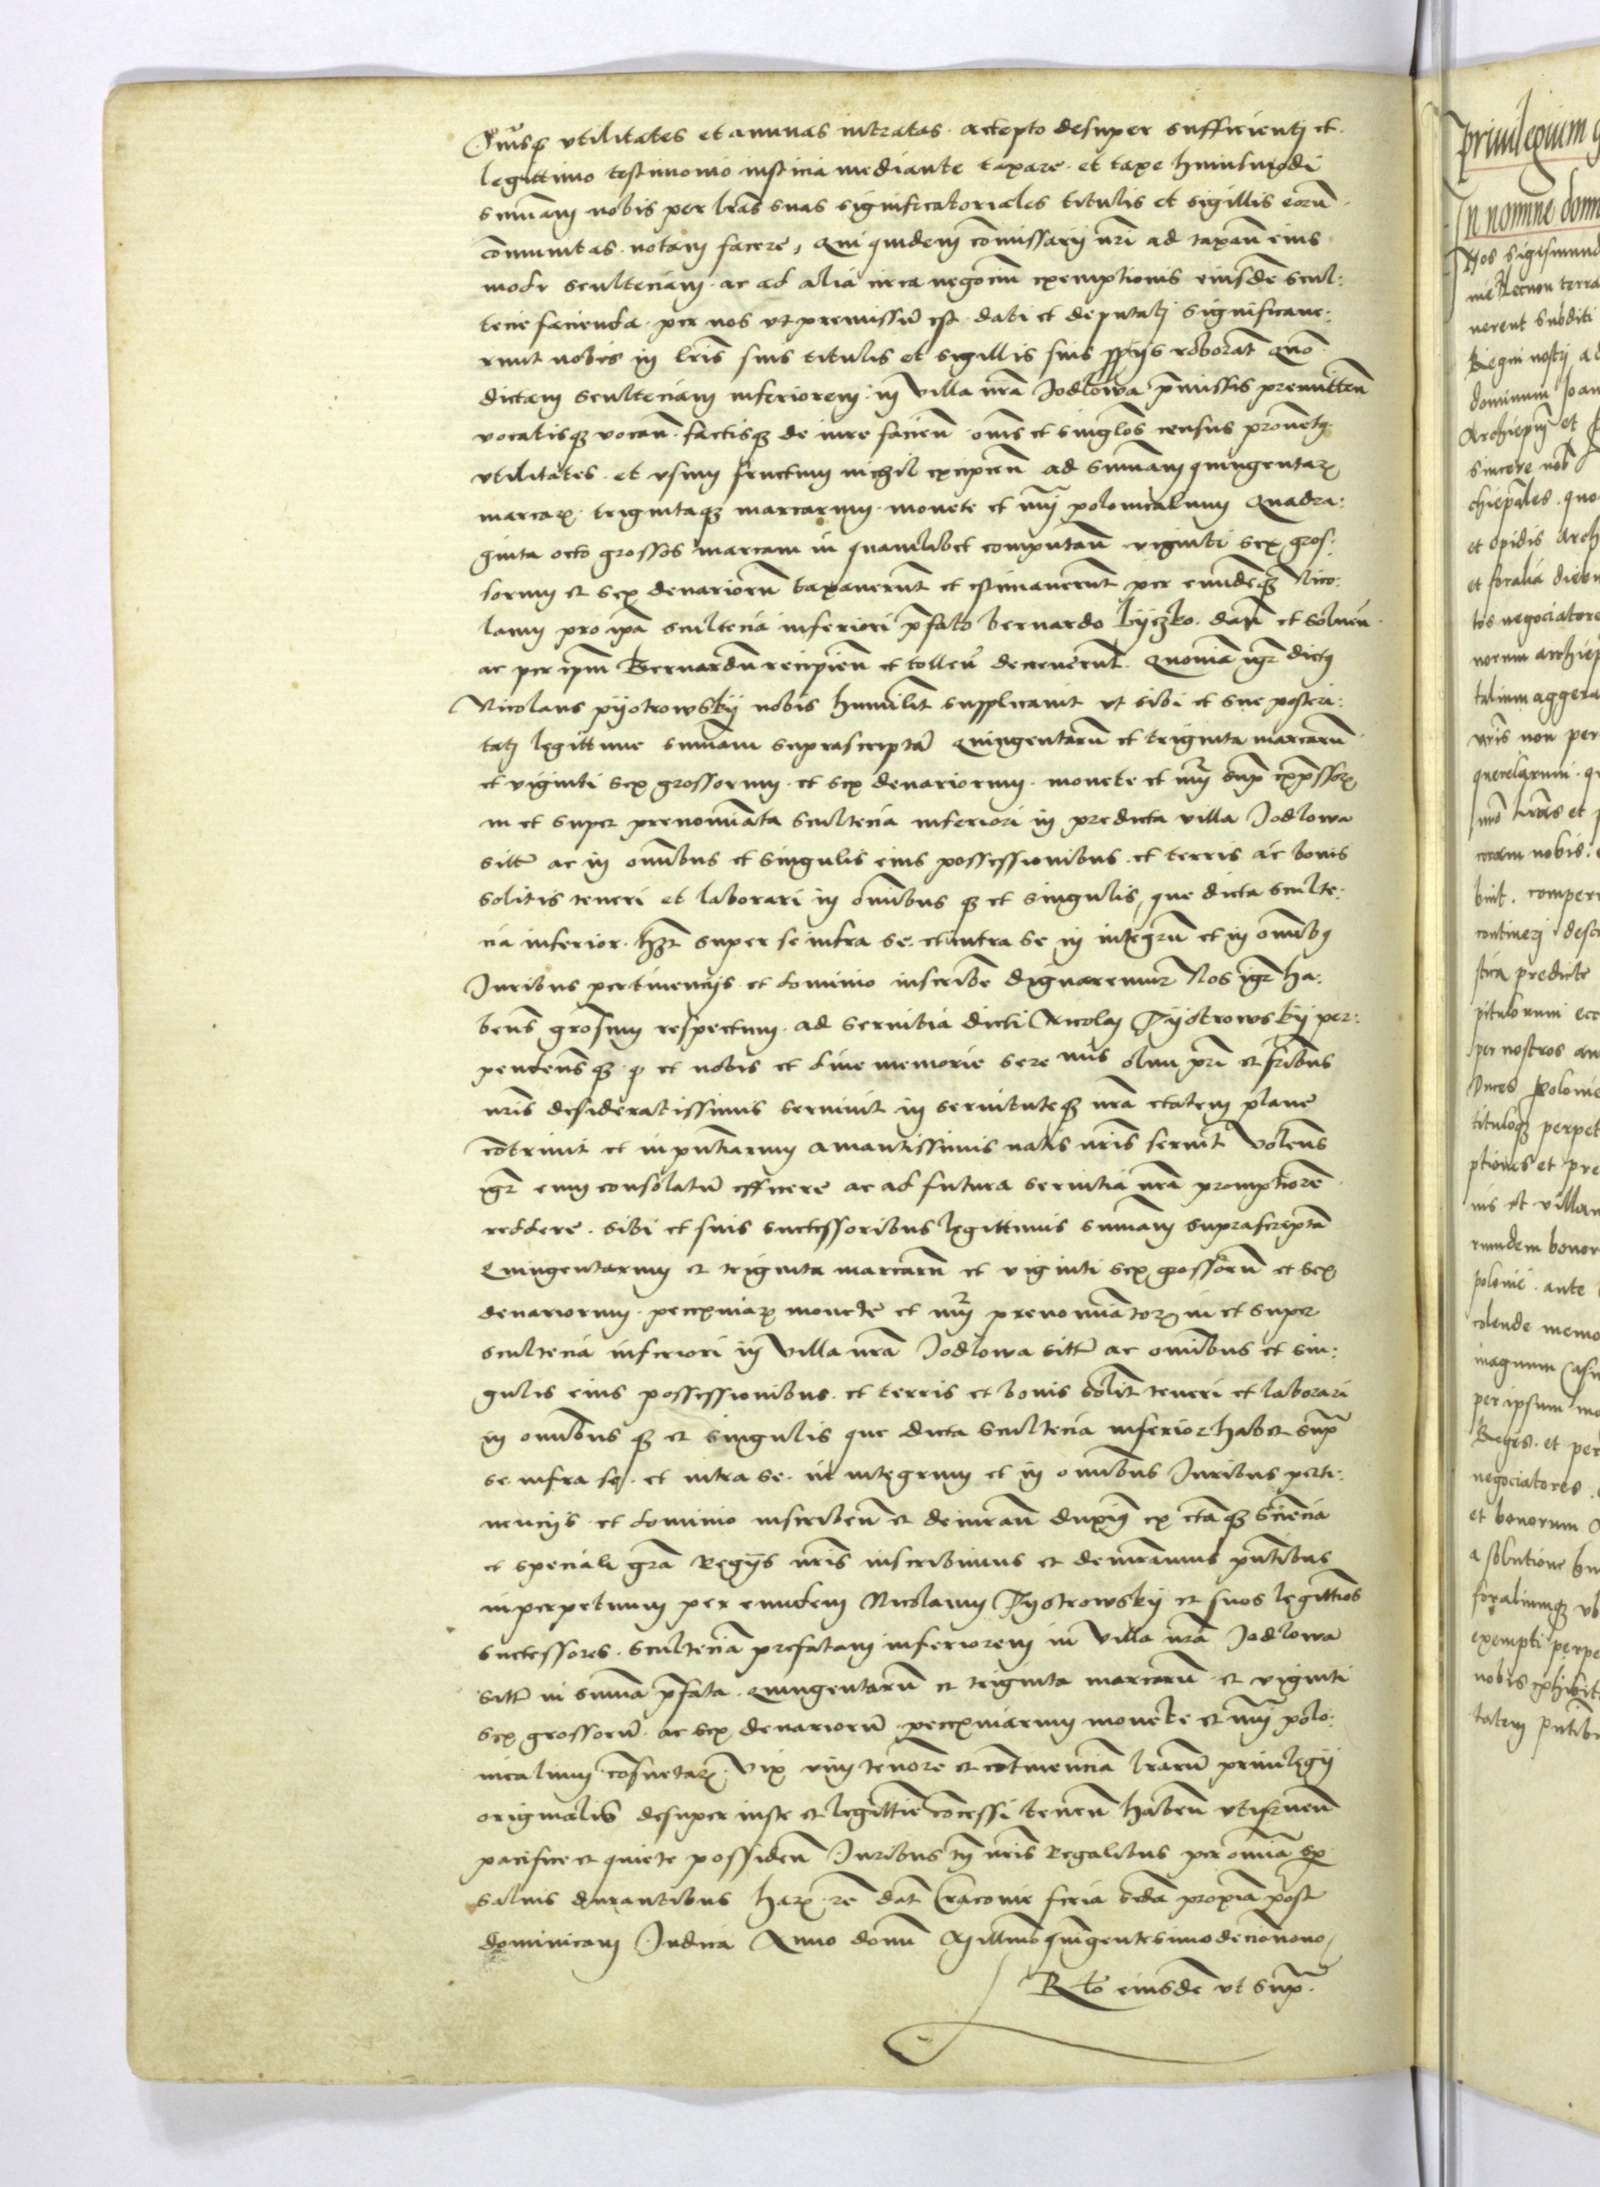 utilitates et annuas intratas accepto desuper sufficientj et
legittimo testimonio iusticia mediante taxare et taxe huiusmodi
sum̄am nobis per lr̄as suas significatoriales titulis et sigillis eorū
com̄unitas notam facere, qui quidem com̄issarij nr̄i ad taxan̄ eius
modi scultetiam ac ad alia circa negociū exemptionis eiusdē scul:
tecie facienda per nos ut premissū est dati et deputatj significave:
runt nobis in lr̄is suis titulis et sigillis suis roborat̄ quō
dictam scultetiam inferiorem in villa nr̄a Jodlowa p̄missis premitten̄
vocatisq̨ vocan̄ factisq̨ de iure facien̄ om̄s et sinḡlos census provent9
utilitates et usum fructum nichil excipien̄ ad sum̄am quingentar̨
marcar̨ trigintaq̨ marcarum monete et nūi polonicalium Quadra:
ginta octo grossos marcam in quamlibet computan̄ viginti sex gros:
sorum et sex denariorū taxaverunt et estimaverunt per eundēq̨ Nico:
laum pro ip̄a scultetia inferiori p̄fato bernardo dan̄ et solven̄
ac per ip̄m Bernardū recipien̄ et tollen̄ decreverunt. Quoniā igr̄ dict9
Nicolaus pyotrowskij nobis humilit̄ supplicavit ut sibi et sue posteri:
tatj legittime sum̄am suprascriptā quingentarū et triginta marcarū
et viginti sex grossorum et sex denariorum monete et nūi sup̄ expressor̨
in et super prenominata scultetia inferiori in predicta villa Jodlowa
sitt̄ ac in om̄ibus et singulis eius possessionibus et terris ac bonis
solitis teneri et laborari in om̄ibus q̨ et singulis, que dicta sculte:
cia inferior h̄t super se infra se et intra se in integrū et in om̄ib9
Juribus pertinencijs et dominio inscribē dignaremur Nos igr̄ ha:
bens grosum respectum ad servitia dicti Nicolaj Pyotrowskij per:
pendensq̨ q̨ et nobis et dive memorie sere nis olim pr̄i et fr̄ibus
nr̄is desideratissimis servivit in servituteq̨ nr̄a etatem plane
cōtrivit et inpn̄tiarum amantissimis natis nr̄is servit̄ Volens
igr̄ eum consolatū efficere ac ad futura servitia nr̄a promptiorē
reddere sibi et suis successoribus legittimis sum̄am suprascriptā
Quingentarum et triginta marcarū et viginti sex grossorū et sex
denariorum peccuniar̨ monete et nūi prenominator̨ in et super
scultetia inferiori in villa nr̄a Jodlowa sitt̄ ac om̄ibus et sin:
gulis eius possessionibus et terris et bonis solit̄ teneri et laborari
in om̄ibus q̨ et singulis que dicta scultetia inferior habet sup̄
se infra se et intra se in integrum et in om̄ibus Juribus perti:
nencijs et dominio inscriben̄ et devirān̄ duxim9 ex cc̄taq̨ sciencia
et speciali gr̄a Regijs nr̄is inscribimus et pn̄tibus
inperpetuum per eundem Nicolaum Pyotrowskij et suos legittīos
successores scultetiā prefatam inferiorem in villa nr̄a Jodlowa
sitt̄ in sum̄a p̄fata Quingentarū et triginta marcarū et viginti
sex grossorū ac sex denariorū peccuniarum monete et nūi polo:
nicalium cōsuetar̨ vim tenorē et cōtinenciā lr̄arū privilegij
originalis desuper iuste et legittīe cōcessi tenen̄ haben̄ utifruen̄
pacifice et quiete possiden̄ Juribus tn̄ nr̄is Regalibus per omnia sp̄
salvis durantibus har̨ re dat̄ Cracovie feria sc̄da proxīa post
dominicam Judica Anno domī Millmōquīngentesimodecīonono
R̄tō eiusdē ut sup̄.
privilegium
In nomine domi
Nos Sigismund
nie Necnon terra
nerent subditi
Regni nostrj
dominum Joan
Archiep̄m et
sincere nob̄
chiep̄ales quo
et opidis Arch
et foralia
tos negociatore
norum archiep
talium aggera
nr̄is non per
querelarum
coram nobis
binit. comperi
continerj desc
stica predicte
pitulorum ecc
per nostros an
Duces Polonie
titulosq̨ perpet
ptiones et pre
nis et villar
rundem bonor
polonie ante
colende memo
magnum Casi
per ipsum mo
Reges et per
negociatores
et bonorum
a solutione hu
foraliumq̨ ub
exempti perpe
nobis exhibite
tatem pn̄tibu